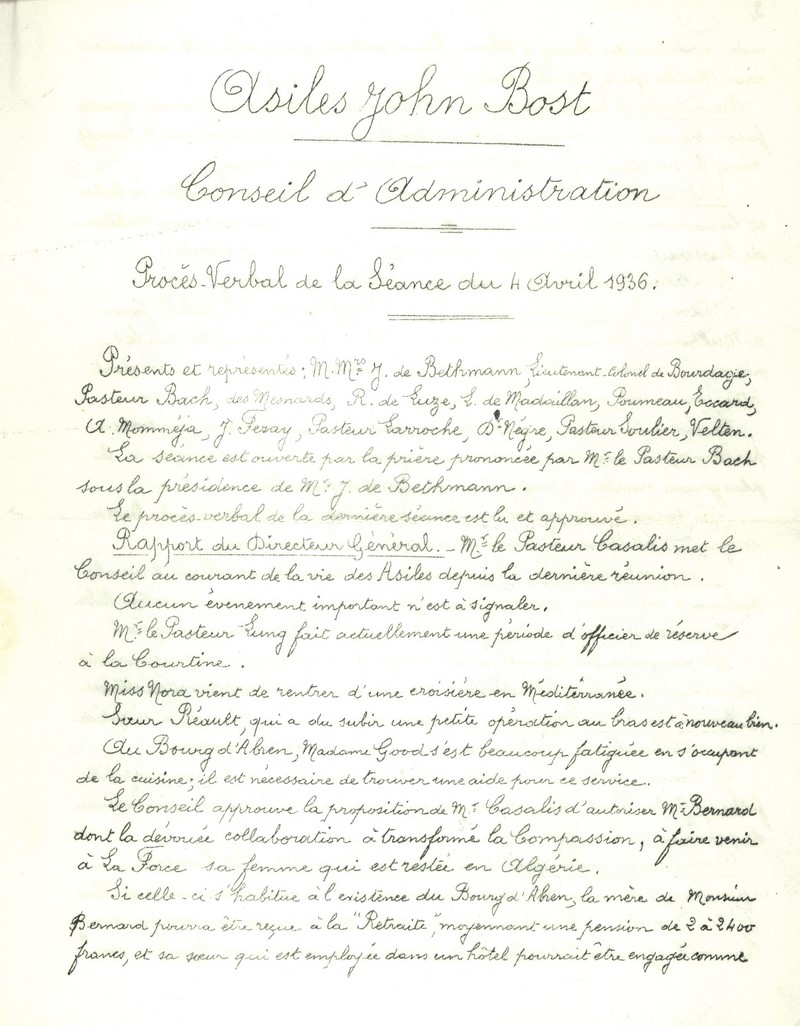 Asiles John Bost
Conseil d'Administration
Procès-Verbal de la Séance du 4 Avril 1936.
Présents et représentés: M.Mrs J. de Bethmann, Lieutenant-Colonel de Bourdage,
Pasteur Bach, des Mesnards, R. de Luze, L. de Madaillan, Poumeau, Eccard,
A. Momméja, J. Feray, Pasteur Larroche, Dr Nègre, Pasteur Soulier, Velten.
La séance est ouverte par la prière prononcée par Mr le Pasteur Bach
sous la présidence de Mr J. de Bethmann.
Le procès-verbal de la dernière séance est lu et approuvé.
Rapport du Directeur Général. - Mr le Pasteur Casalis met le
Conseil au courant de la vie des Asiles depuis la dernière réunion.
Aucun évènement important n'est à signaler.
Mr le Pasteur Lung fait actuellement une période d'officier de réserve
à la Courtine.
Miss Nora vient de rentrer d'une croisière en Méditérranée.
Sœur Réault, qui a du subir une petite opération au bras est à nouveau bien.
Au Bourg d'Abren, Madame Good s'est beaucoup fatiguée en s'occupant
de la cuisine; il est nécessaire de trouver une aide pour ce service.
Le Conseil approuve la proposition de Mr Casalis d'autoriser Mr Bernard
dont la dévouée collaboration à transformé la Compassion, à faire venir
à La Force sa femme qui est restée en Algérie.
Si celle-ci s'habitue à l'existence du Bourg d'Abren, la mère de Monsieur
Bernard pourra être reçue à la "Retraite", moyennant une pension de 2 à 2400
francs, et sa sœur qui est employée dans un hôtel pourrait être engagée comme